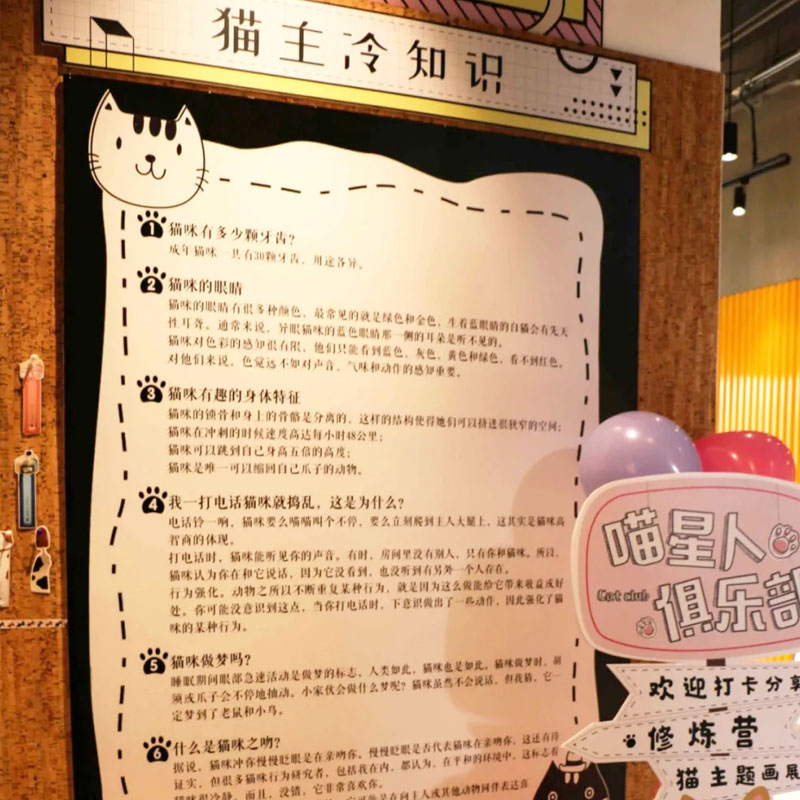 猫主冷知识
1 猫咪有多少颗牙齿?
成年猫咪一共有30颗牙齿,用途各异。
2 猫咪的眼睛
猫咪的眼睛有很多种颜色,最常见的就是绿色和金色,生着蓝眼睛的白猫会有先天
性耳聋。通常来说,异眼猫咪的蓝色眼睛那一侧的耳朵是听不见的。
猫咪对色彩的感知很有限,他们只能看到蓝色、灰色、黄色和绿色,看不到红色。
对他们来说,色觉远不如对声音、气味和动作的感知重要。
3 猫咪有趣的身体特征
猫咪的锁骨和身上的骨骼是分离的,这样的结构使得她们可以挤进很狭窄的空间;
猫咪在冲刺的时候速度高达每小时48公里;
猫咪可以跳到自己身高五倍的高度;
猫咪是唯一可以缩回自己爪子的动物。
4 我一打电话猫咪就捣乱,这是为什么?
电话铃一响,猫咪要么喵喵叫个不停,要么立刻爬到主人大腿上,这其实是猫咪高
智商的体现。
打电话时,猫咪能听见你的声音。有时,房间里没有别人,只有你和猫咪。所以,
猫咪认为你在和它说话,因为它没看到,也没听到有另外一个人存在。
行为强化。动物之所以不断重复某种行为,就是因为这么做能给它带来收益或好
处。你可能没意识到这点,当你打电话时,下意识做出了一些动作,因此强化了猫
咪的某种行为。
5 猫咪做梦吗?
睡眠期间眼部急速活动是做梦的标志,人类如此,猫咪也是如此。猫咪做梦时,胡
须或爪子会不停地抽动。小家伙会做什么梦呢?猫咪虽然不会说话,但我猜,它一
定梦到了老鼠和小鸟。
6 什么是猫咪之吻?
据说,猫咪冲你慢慢眨眼是在亲吻你。慢慢眨眼是古代表猫咪在亲吻你,这还有待
证实,但很多猫咪行为研究者,包括我在内,都认为,在平和的环境中,这标志着
猫咪很冷静,而且,没错,它非常喜欢你。
可能是在向主人或其他动物同伴表达喜
喵星人
Cat club
俱乐部
欢迎打卡分享
修炼营
猫主题画展